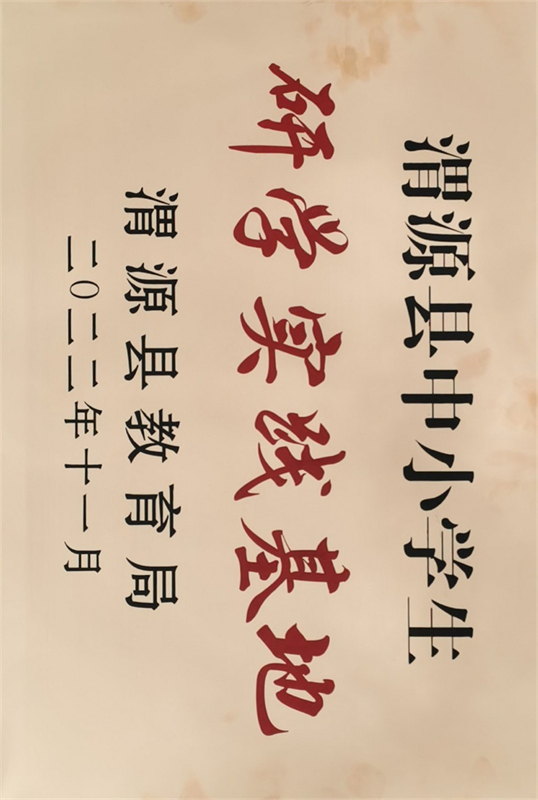 渭源县中小学生
研学实践基地
渭源县教育局
二〇二二年十一月